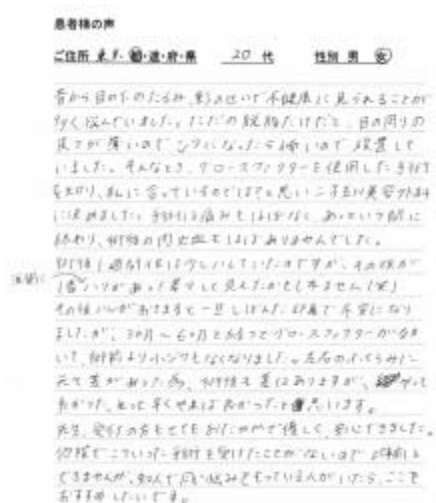 患者様の声
ご住所 東京 都・道・府・県 20 代 性別 男 女
昔から目の下のたるみ、影のせいで不健康に見られることが
多く悩んでいました。ただの脱脂だけだと、目の周りの
皮フが薄いのでシワになったら怖いので放置して
いました。そんなとき、グロースファクターを使用した手術
を知り、私に合っているのではと思い こちらの美容外科
に決めました。手術は痛みもほぼなく、あっという間に
終わり、術後の内出血もほぼありませんでした。
術後1週間程は少しハレていたのですが、その頃が
1番ハリがあって若々しく見えたかもしれません(笑)
その後ハレがおさまると一旦しぼんだ印象で不安になり
ましたが、3ヶ月〜6ヶ月と経つとグロースファクターが
いて、術前より小ジワもなくなりました。左右のふくらみに
元々差があった為、術後も差はありますが、やって
良かった、もっと早くやれば良かったと思います。
先生、受付の方もとてもおだやかで優しく、安心できました。
他院でこういった手術を受けたことがないので比較
できませんが、知人で同じ悩みをもっている人がいたら、ここを
おすすめしたいです。